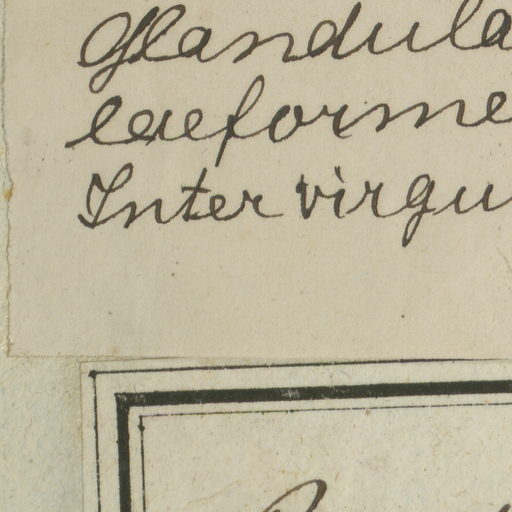 Glandula
laeforme
Inter virgu